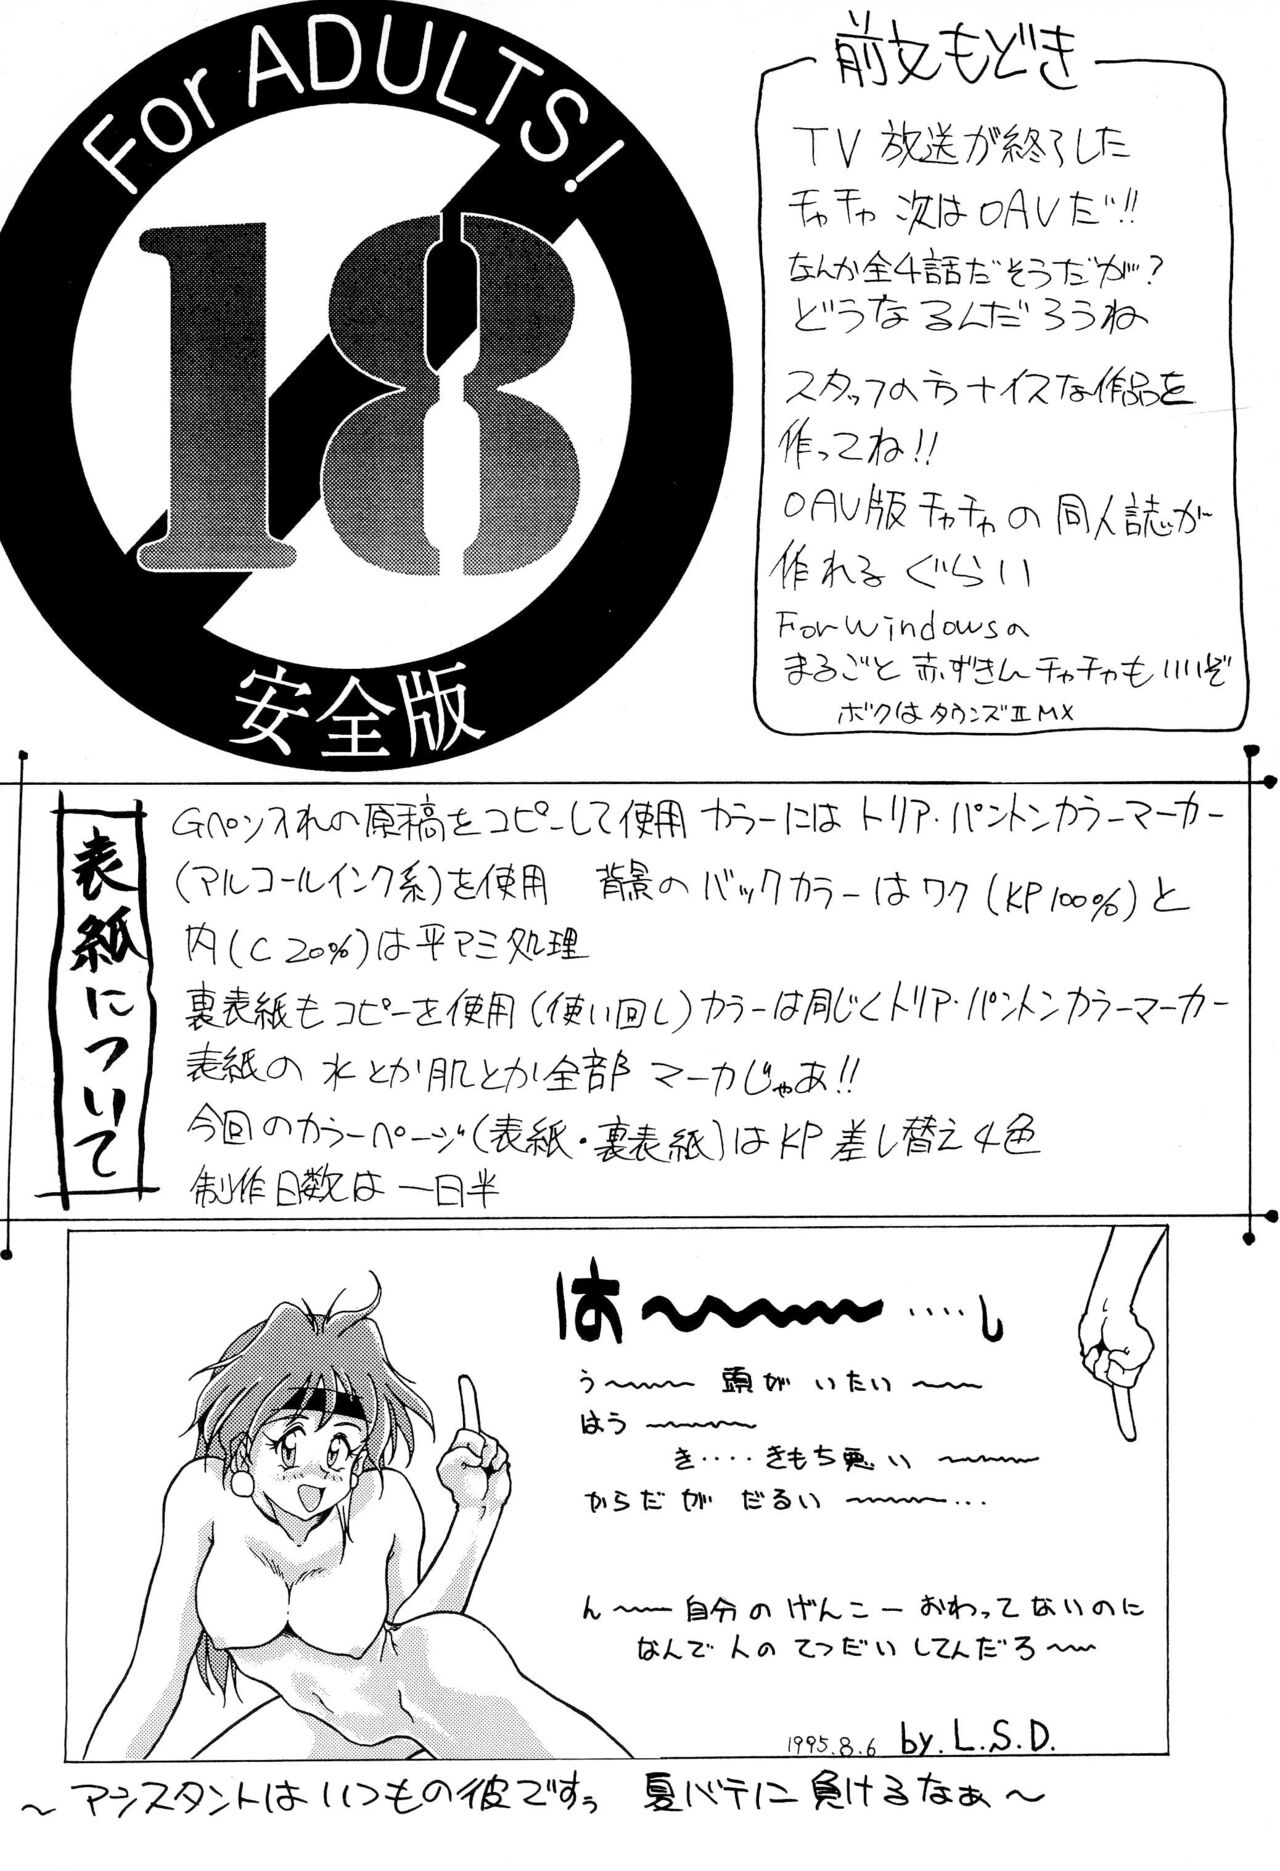 For ADULTS!
18
安全版
前文もどき
TV 放送が終了した
チャチャ 次は OAVだ!!
なんか全4話だそうだが?
どうなるんだろうね
スタッフの方 ナイスな作品を
作ってね!!
OAV版 チャチャの 同人誌が
作れる ぐらい
For Windowsの
まるごと 赤ずきんチャチャも いいぞ
ボクは タウンズII MX
表紙について
Gペン入れの原稿をコピーして使用 カラーには トリア・パントンカラーマーカー
(アルコールインク系)を使用 背景のバックカラーはワク(KP100%)と
内(C20%)は平アミ処理
裏表紙もコピーを使用(使い回し)カラーは同じくトリア・パントンカラーマーカー
表紙の 水とか肌とか全部 マーカじゃあ!!
今回のカラーページ(表紙・裏表紙)はKP差し替え4色
制作日数は 一日半
は〜〜〜〜‥‥し
う〜〜〜 頭が いたい 〜〜〜
はう 〜〜〜〜
き‥‥きもち悪い 〜〜〜〜
からだが だるい 〜〜〜〜…
ん〜〜〜自分の げんこー おわってないのに
なんで人の てつだい してんだろ〜〜
1995.8.6 by. L.S.D.
〜 アシスタントは いつもの彼ですぅ 夏バテに 負けるなぁ〜